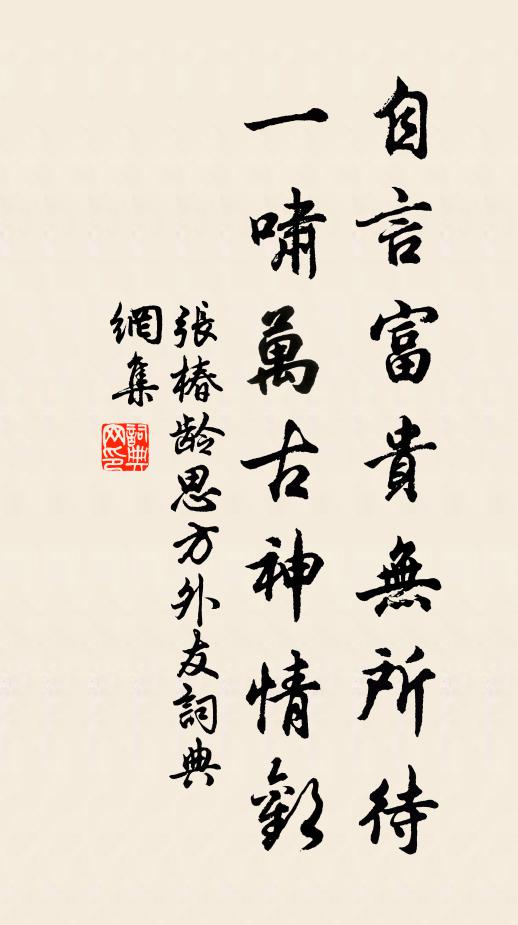 自言富貴無所待
一嘯萬古神情歡
張椿齡思方外友詞典
網集
詞典網印